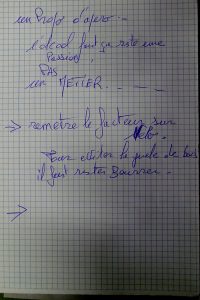 un Prof d'apéro...
l'alcool fait ça reste une
Passion,
PAS
un METIER.......
→ remetre le facteur sur
Velo.
Pour eviter la guele de bois
il faut rester Bourrer.
→